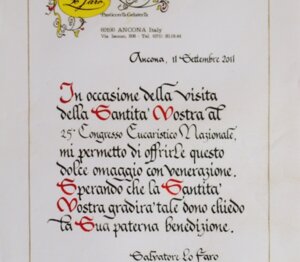 Lo Faro
Pasticceria Gelateria
60100 ANCONA Italy
Ancona, 11 Settembre 2011
In occasione della visita
della Santità Vostra al
25° Congresso Eucaristico Nazionale,
mi permetto di offrirle questo
dolce omaggio con venerazione.
Sperando che la Santità
Vostra gradirà tale dono chiedo
la Sua paterna benedizione.
Salvatore Lo Faro